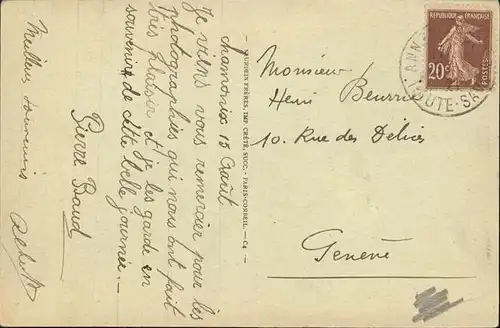 chamonix 15 Août
Je viens vous remercier pour les
photographies qui nous ont fait
très plaisir et je les garde en
souvenire de cette belle journée.
Pierre Baud
Meilleurs souvenirs
Monsieur
Henri
10. Rue des Délices
Genève
FRÈRES, IMP. CRÉTÉ, SUCC. - PARIS-CORBEIL. - C4
REPUBLIQUE FRANÇAISE
20c
POSTES